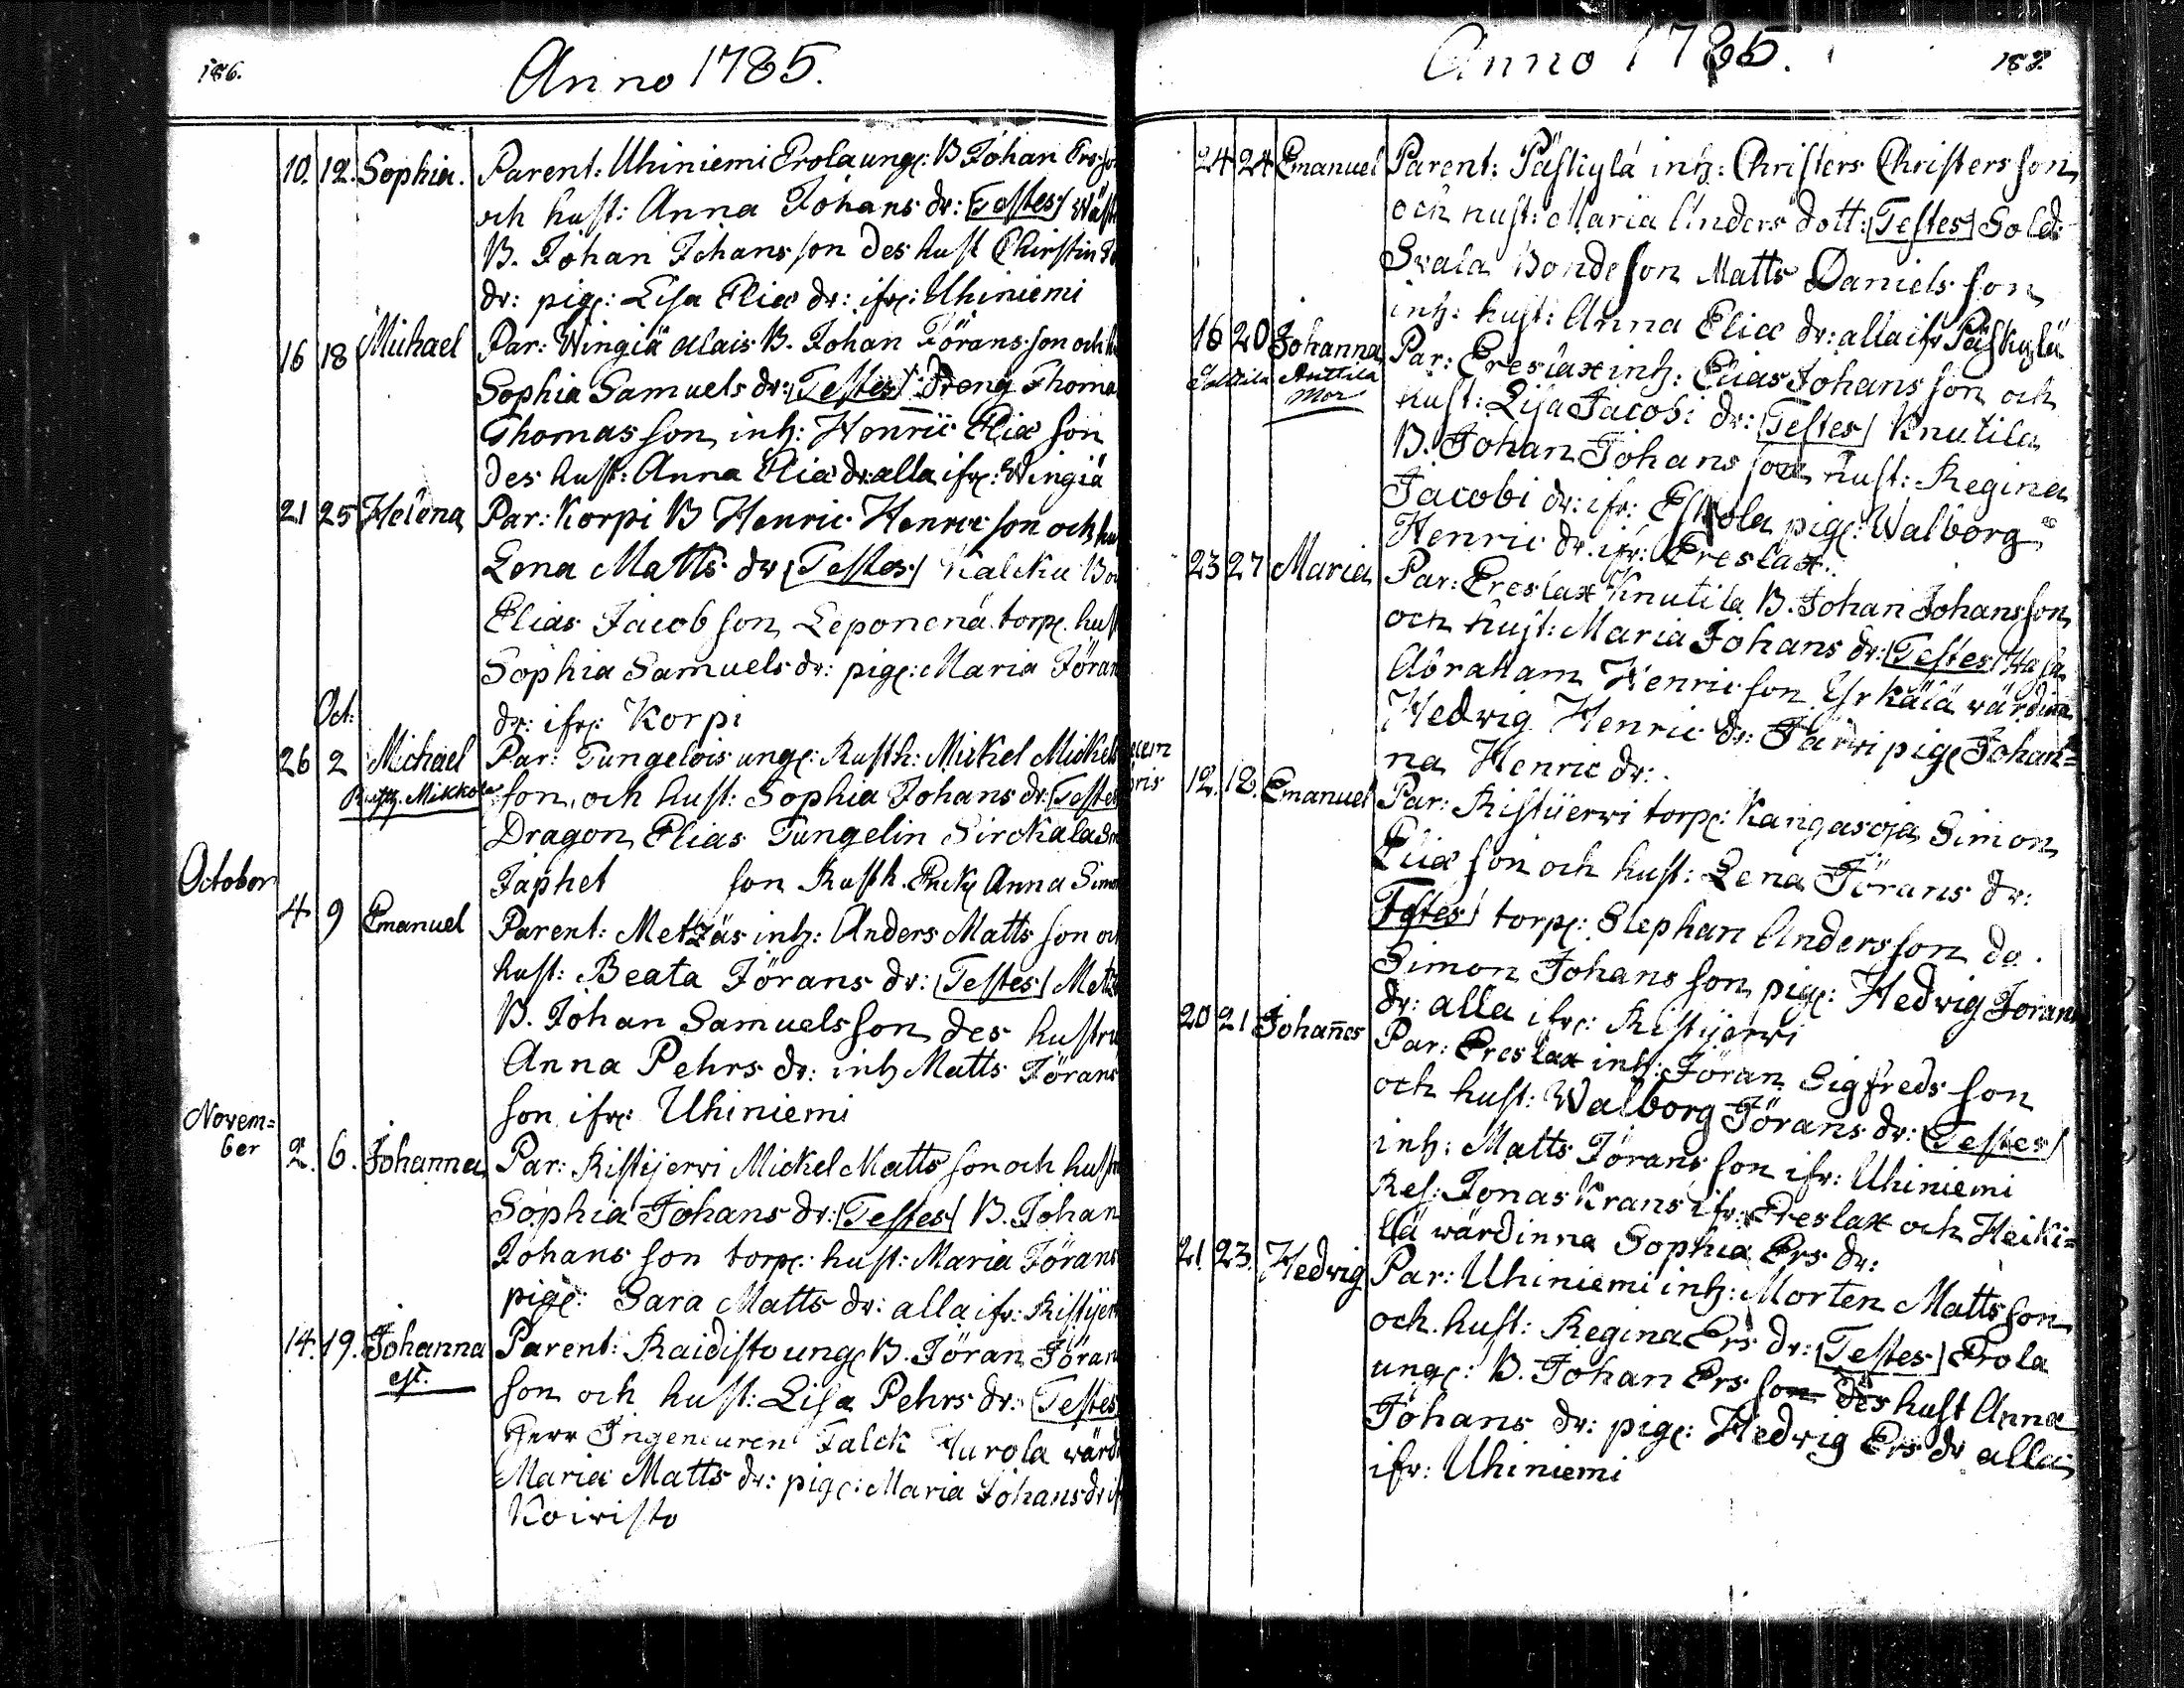 186.
Anno 1785.
10. 12. Sophia. Parent: Uhiniemi Erola ungͤ: B Johan Ers so
och hust: Anna Johans dr: Testes Wäst
B. Johan Johans son des hust Chirstin
dr: pigͤ: Lisa Eliæ dr: ifrͤ: Uhiniemi
16 18 Michael Par: Wingiä Alais B. Johan Jörans son och
Sophia Samuels dr: Testes: Dreng Thoma
Thomas son inh: Henric Eliæ son
des hust: Anna Eliæ dr: alla ifrͤ: Wingiä
21 25 Helena Par: Korpi B Henric Henric son och hu
Lena Matts dr Testes Kalcku Bo
Elias Jacob son Leponena torpͤ. hust
Sophia Samuels dr: pigͤ: Maria Jöran
dr: ifrͤ: Korpi
Oct:
26 2 Michael Par: Tungelois ungͤ: Rusth: Mickel Mickels
Rusth. Mikkola son, och hust: Sophia Johans dr: Testes
Dragon Elias Tungelin Sirckala
Japhet son Rusth. Anna Simo
October
4 9 Emanuel Parent: Metzäs inh: Anders Matts son och
hust: Beata Jörans dr: Testes Metz
B. Johan Samuels son des hustru
Anna Pehrs dr: inh Matts Jörans
son ifrͤ: Uhiniemi
Novem=
ber
2. 6. Johanna Par: Ristijerwi Mickel Matts son och hustr
Sophia Johans dr: Testes B. Johan
Johans son torpͤ: hust: Maria Jörans
pigͤ: Sara Matts dr: alla ifr: Ristijer
14. 19. Johanna Parent: Raidisto ungͤ B. Jöran Jöran
son och hust: Lisa Pehrs dr: Testes
Herr Ingeneuren Falck Turola wärd
Maria Matts dr: pigͤ: Maria Johans dr if
Koivisto
Anno 1785.
187.
24 24 Emanuel Parent: Päskylä inh: Christers Christers son
och hust: Maria Anders dott: Testes Sold:
Svala Bondeson Matts Daniels son
inh: hust: Anna Eliæ dr: alla ifr Päskylä
16 20 Johanna Par: Ereslax inh: Elias Johans son och
Anttila
Mor
hust: Lisa Jacobi dr: Testes Knutila
B. Johan Johans son hust: Regina
Jacobi dr: ifr: Eskola pigͤ: Walborg
Henric dr. ifr: Ereslax.
23 27 Maria Par: Ereslax Knutila B. Johan Johans son
och hust: Maria Johans dr: Testes
Abraham Henric son Yrkälä wärdina
Hedwig Henric dr: Järwi pigͤ Johan=
na Henric dr:
ecem
bris
12. 18. Emanuel Par: Ristijerwi torpͤ: Kangasoja Simon
Eliæ son och hust: Lena Jörans dr:
Testes torpͤ: Stephan Anders son do.
Simon Johans son pigͤ: Hedwig Jörans
dr: alla ifrͤ: Ristijerwi
20 21 Johan̄es Par: Ereslax inh: Jöran Sigfreds son
och hust: Walborg Jörans dr: Testes
inh: Matts Jörans son ifr: Uhiniemi
Res: Jonas Krans ifr: Ereslax och Heiki=
lä wärdinna Sophia Ers dr:
21. 23. Hedwig Par: Uhiniemi inh: Morten Matts son
och hust: Regina Ers dr: Testes Erola
ungͤ: B. Johan Ers son des hust Anna
Johans dr: pigͤ: Hedwig Ers dr alla
ifr: Uhiniemi